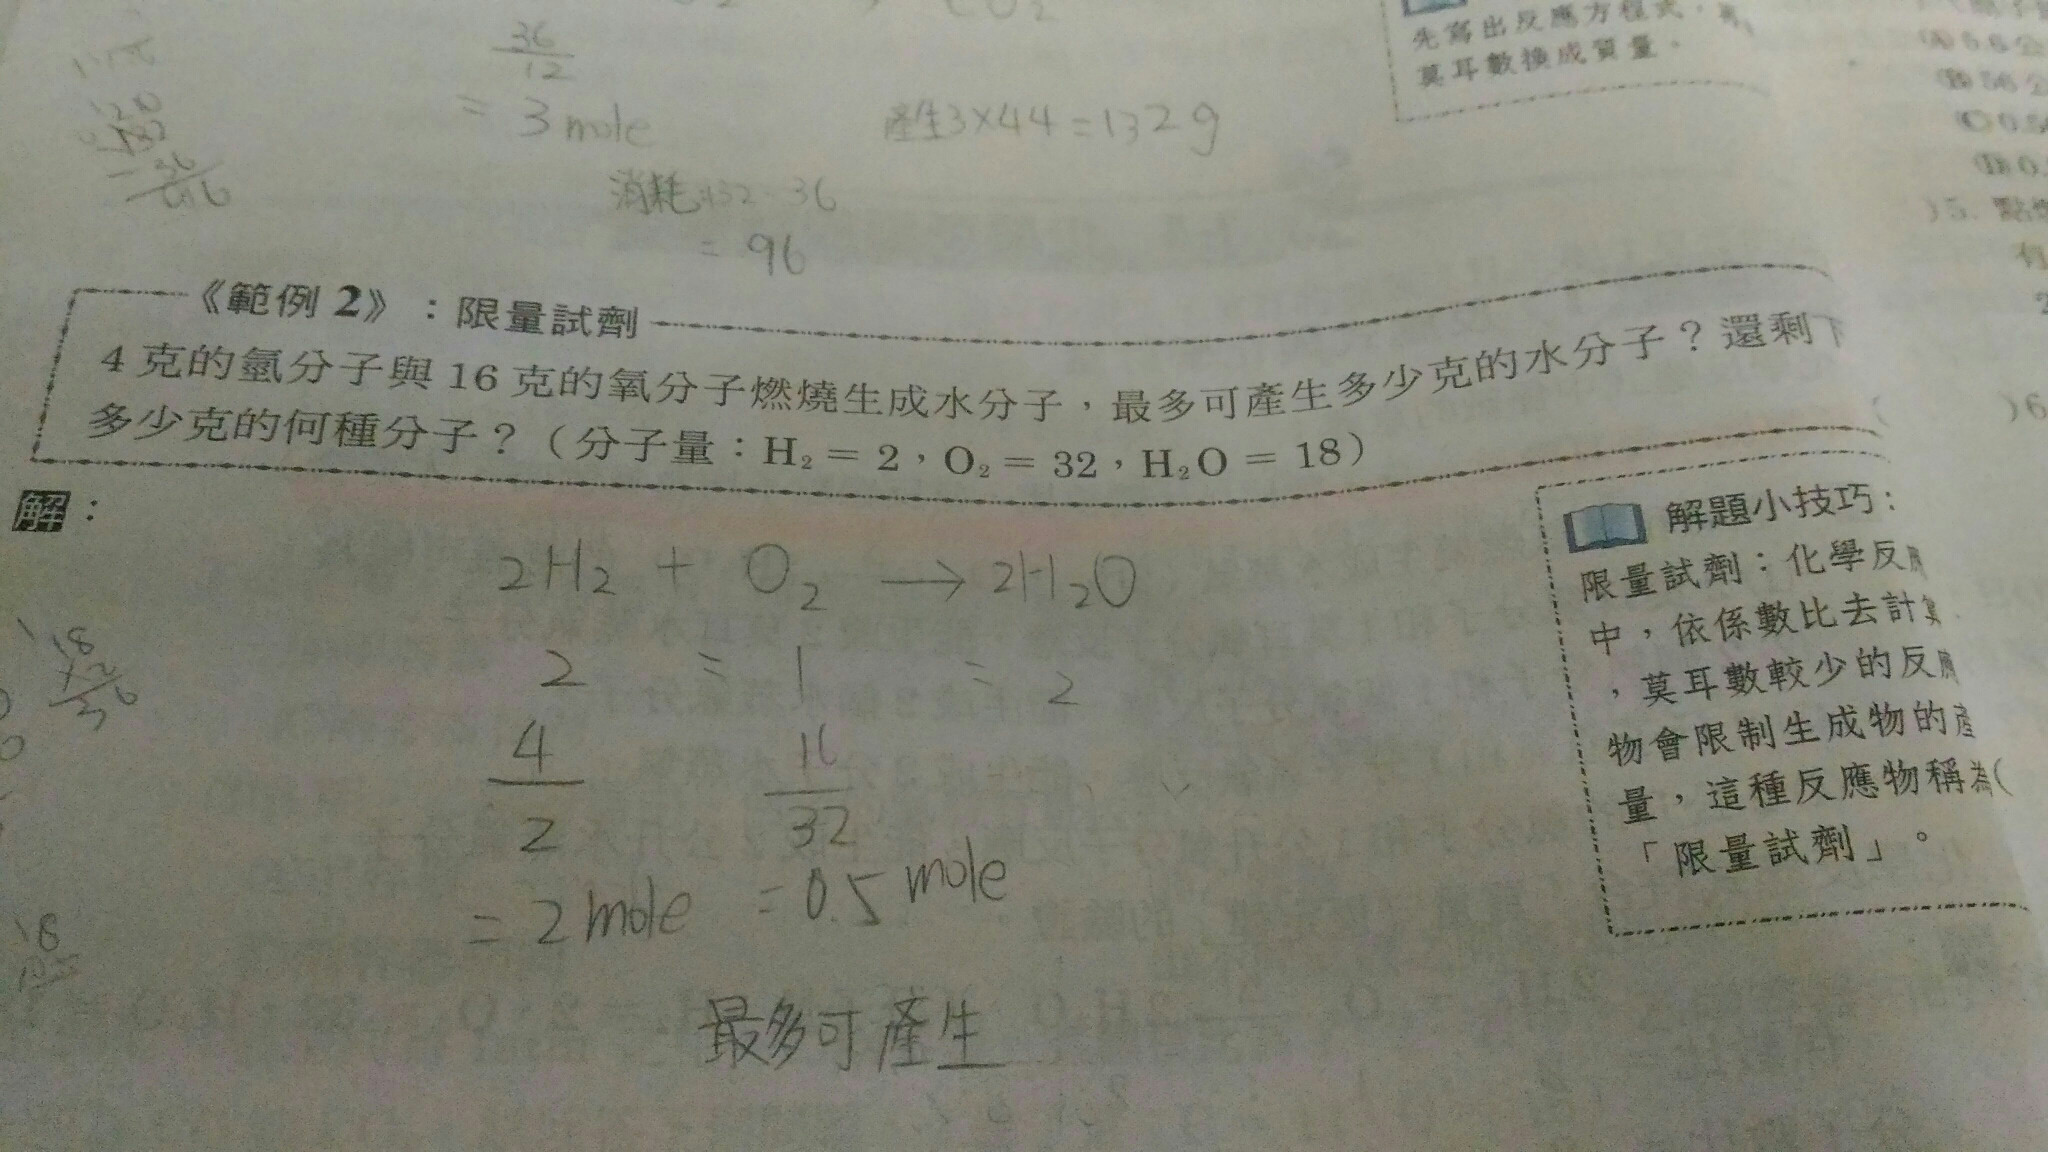 CO₂
36
12
= 3 mole
產生3×44=132g
消耗132-36
= 96
先寫出反應方程式，
莫耳數換成質量。
《範例2》：限量試劑
4克的氫分子與16克的氧分子燃燒生成水分子，最多可產生多少克的水分子？還剩下
多少克的何種分子？（分子量：H₂=2，O₂=32，H₂O=18）
解：
2H₂ + O₂ → 2H₂O
2 = 1 = 2
4
2
16
32
= 2 mole = 0.5 mole
最多可產生
18
×2
36
18
解題小技巧：
限量試劑：化學反應
中，依係數比去計算
，莫耳數較少的反應
物會限制生成物的產
量，這種反應物稱為
「限量試劑」。
)5. 點
有
)6